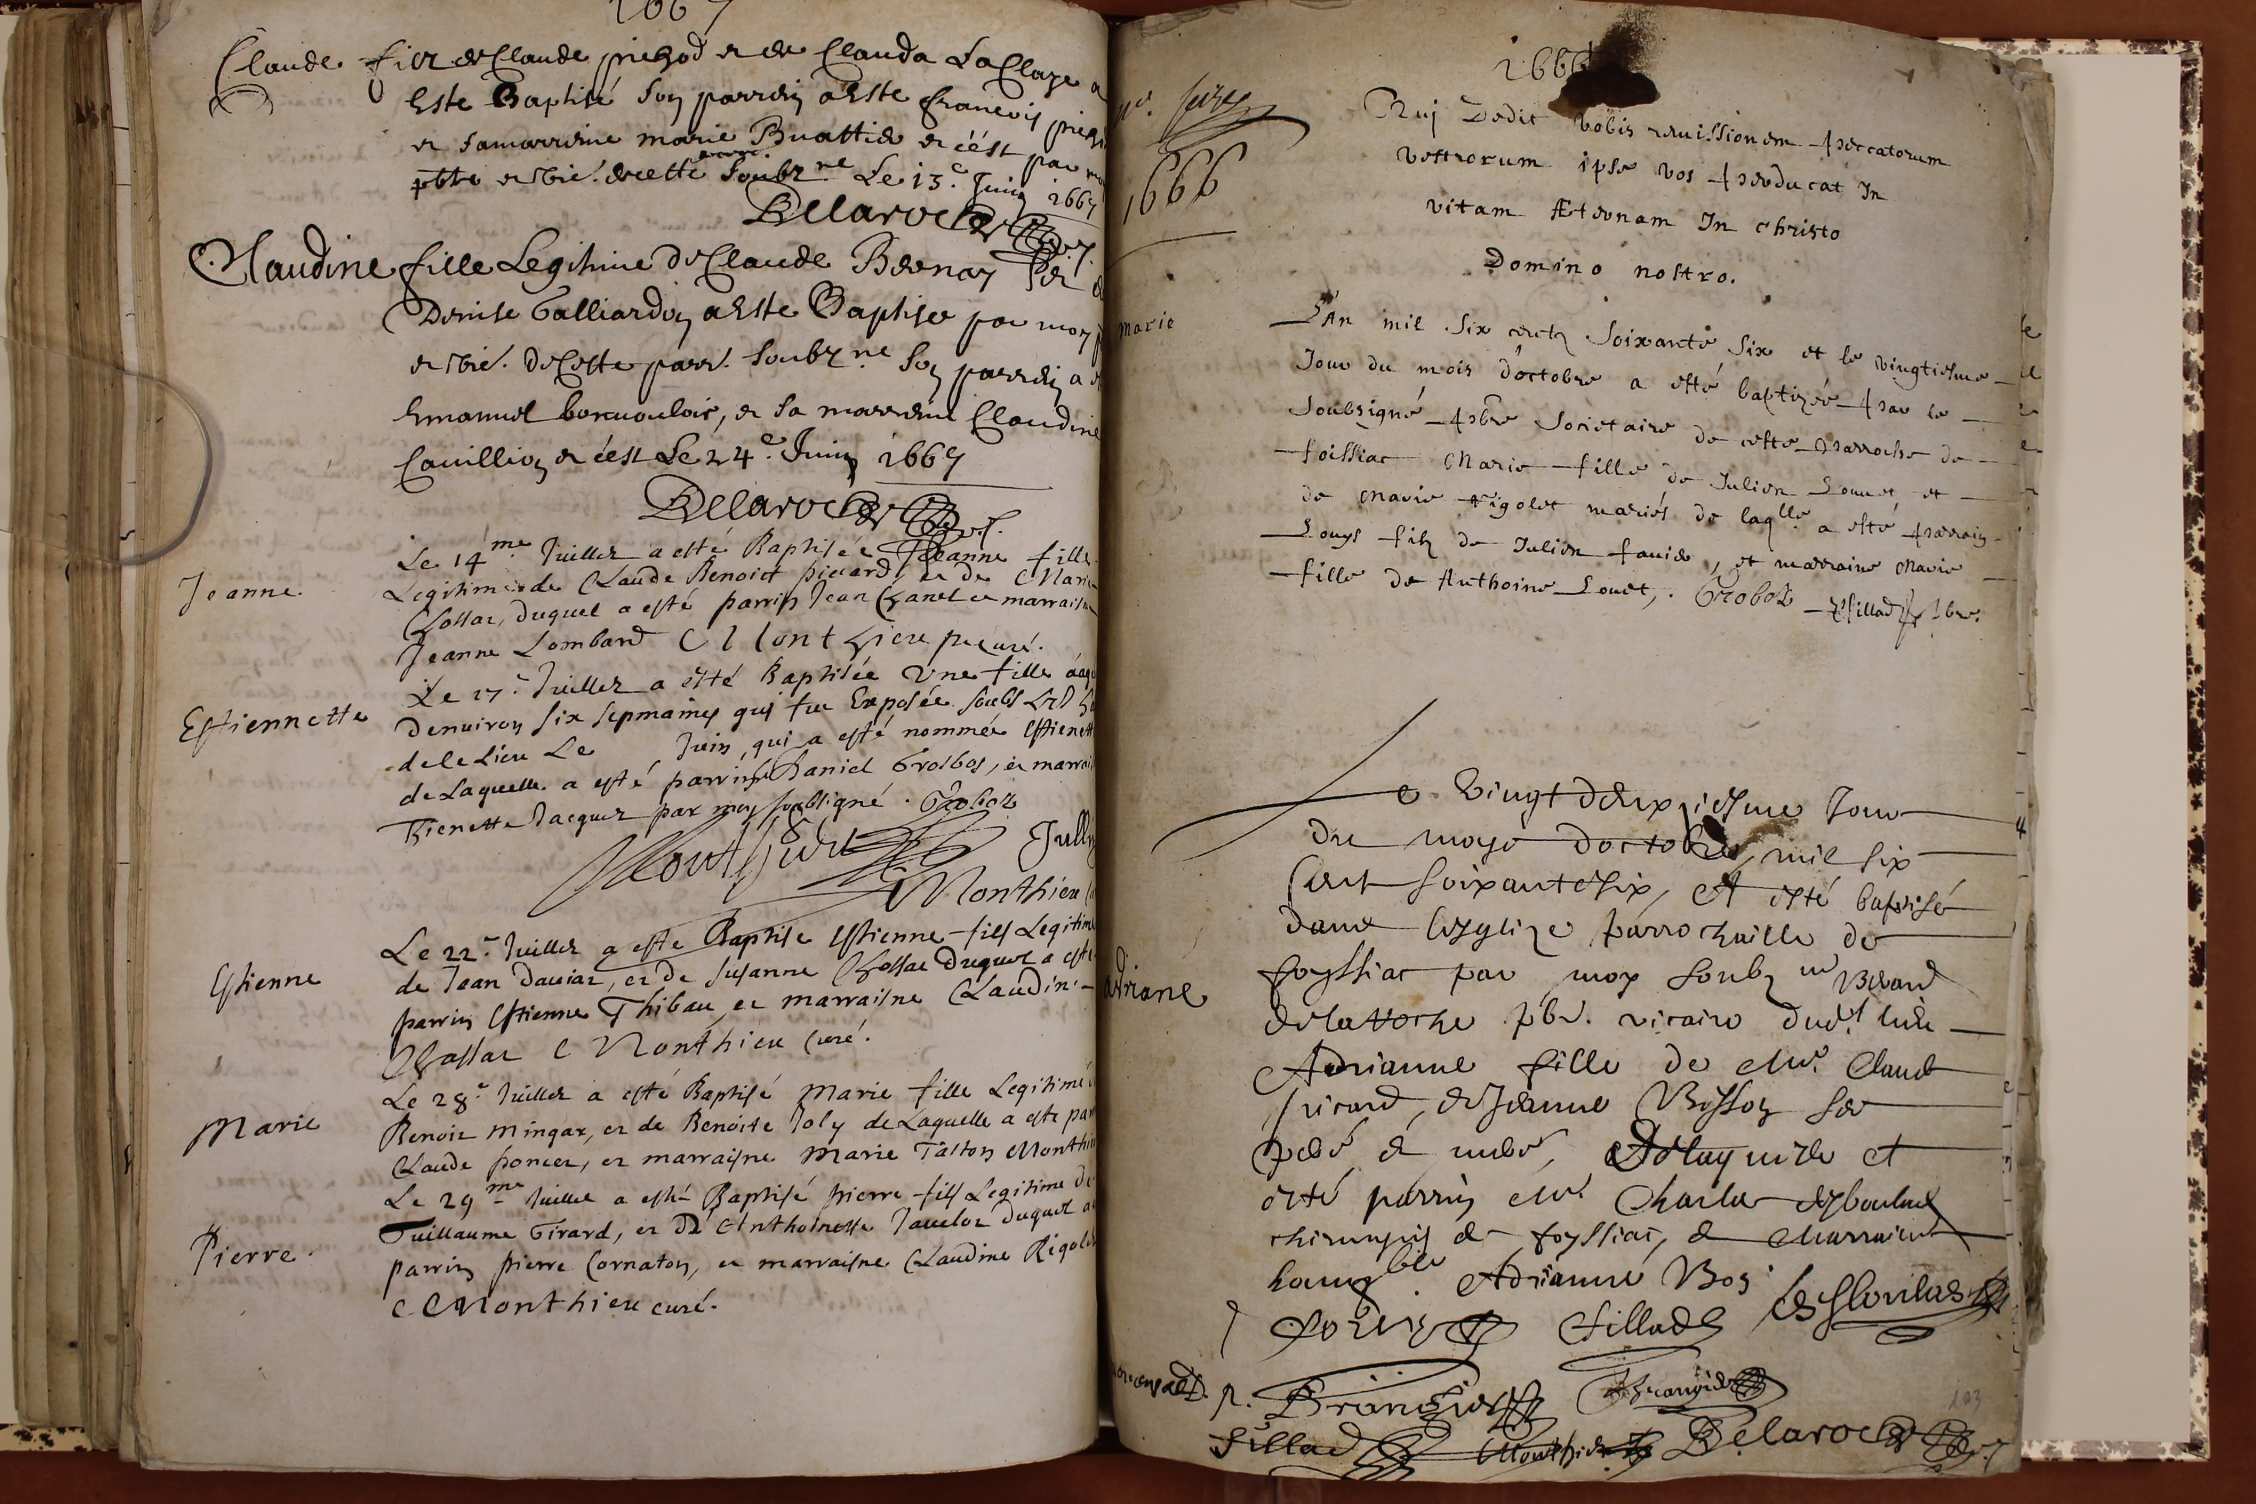 1667
Claude filz de Claude piegod et de Clauda La Claye a
Este Baptisé Son parrein a Este francois pieg
et sa marreine marie Buattier et c'est par moy
pbtre et vic. de cette soubz.ne Le 13.e Juin 1667
Delaroche
Claudine fille Legitime De Claude Bernay et de
Denise Galliardon a Este Baptisee par moy p
et vic. De Cette parr. soubz.ne Son parrein a e
Emanuel, et sa marreine Claudine
Cauillion et c'est Le 24.e Juin 1667
Delaroche
Jeanne.
Le 14me Juillet a esté Baptisée Jeanne fille
Legitime de Claude Benoict picard, et de Marie
Chossat, duquel a esté parrin Jean Chanel et marraisne
Jeanne Lombard C Monthieu pr curé.
Estiennette
Le 17.e Juillet a esté Baptisée Une fille aagé
denuiron six sepmaines qui fut Exposée soubs
de ce Lieu Le Juin, qui a esté nommée Estienett
de Laquelle a esté parrin Daniel Grosbos, et marrai
Thienette Jacquet par moy soubsigné. Groboz
Monthieu Jullin
Monthieu
Estienne
Le 22.e Juillet a esté Baptisé Estienne fils Legitime
de Jean Dauiat, et de Susanne Chossat Duquel a esté
parrin Estienne Thibau et marraisne Claudine
Chossat C Monthieu Curé.
Marie
Le 28.e Juillet a esté Baptisé Marie fille Legitime
Benoit Mingat, et de Benoite Joly de Laquelle a este par
Claude poncet, et marraisne Marie Taston Monthieu
Pierre.
Le 29me Juillet a esté Baptisé pierre fils Legitime de
Guillaume Girard, et de Anthoinette Jauelot duquel a
parrin pierre Cornaton, et marraisne Claudine Rigolet
C Monthieu curé.
1666
1666
Qui Dedit vobis remissionem peccatorum
vestrorum ipse vos perducat In
vitam Æternam In christo
Domino nostro.
marie
L'An mil six centz soixante six et le vingtiesme
Jour du mois d'octobre a esté baptizée par le
Soubsigné pbre Societaire de cette parroche de
foissiac Marie fille de Julien Louet et
de Marie Rigolet mariés de laqlle a esté parrain
Louys filz de Julien fauier, et marraine Marie
fille de Anthoine Louet, Groboz fillad pbre.
adriane
Le vingt deuxiesme Jour
du moys doctobre mil six
cent soixante six, A esté baptisé
dans lesglize parrochialle de
foyssiac par moy soubz.né Berard
delaroche pbr. vicaire dudit lieu
Adrianne fille de Mr. Claude
picard, et Jeanne Bosson ses
pere et mere, De laquelle at
esté parrin Mr Charles desboulad
chirurgin de foyssiac, et Marraine
honnble Adrianne Bos
fillade
Brangier
Brangier
fillad
Monthieu
Delaroche
103